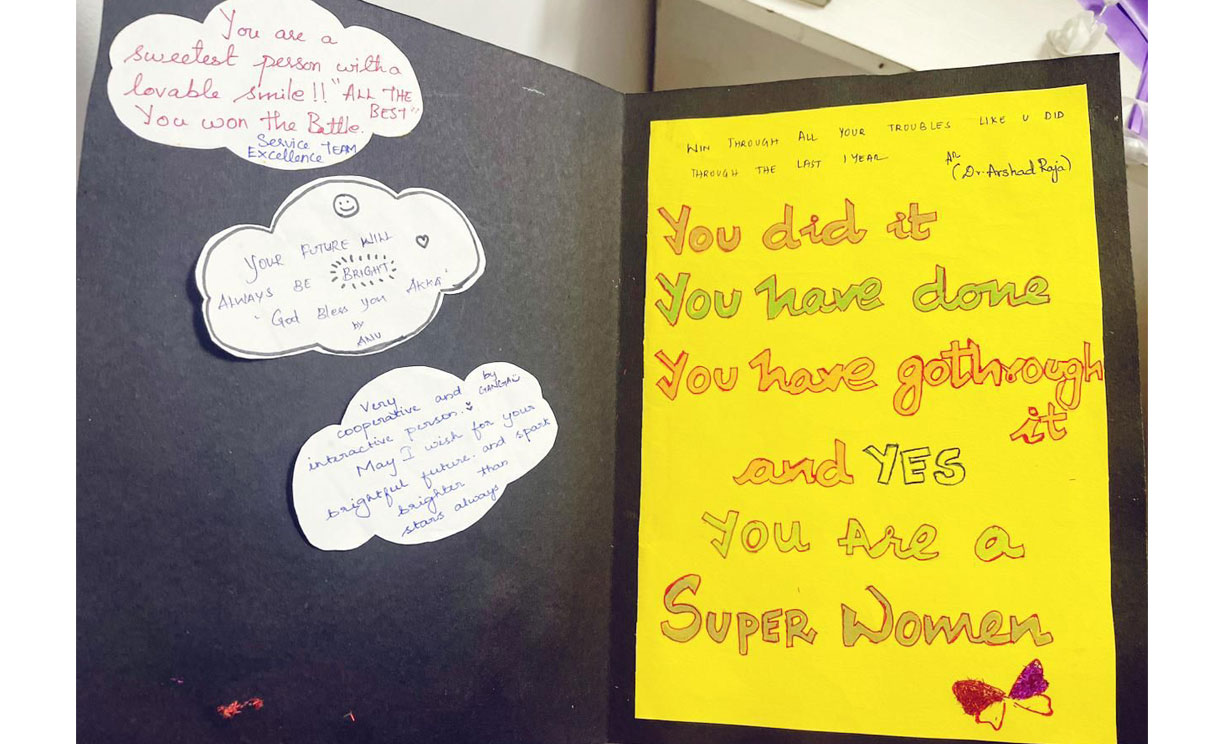 You are a
sweetest person with a
lovable smile!! "ALL THE
BEST"
You won the Battle.
Service TEAM
Excellence
YOUR FUTURE WILL
ALWAYS BE BRIGHT
"God Bless you AKKA"
by
ANU
Very
cooperative and
interactive person.
by
GANGA
May I wish for your
brightful future. and spark
brighter than
stars always
WIN THROUGH ALL YOUR TROUBLES LIKE U DID
THROUGH THE LAST 1 YEAR
AR
(Dr. Arshad Raja)
You did it
You have done
You have gothrough
it
and YES
You Are a
SUPER Women